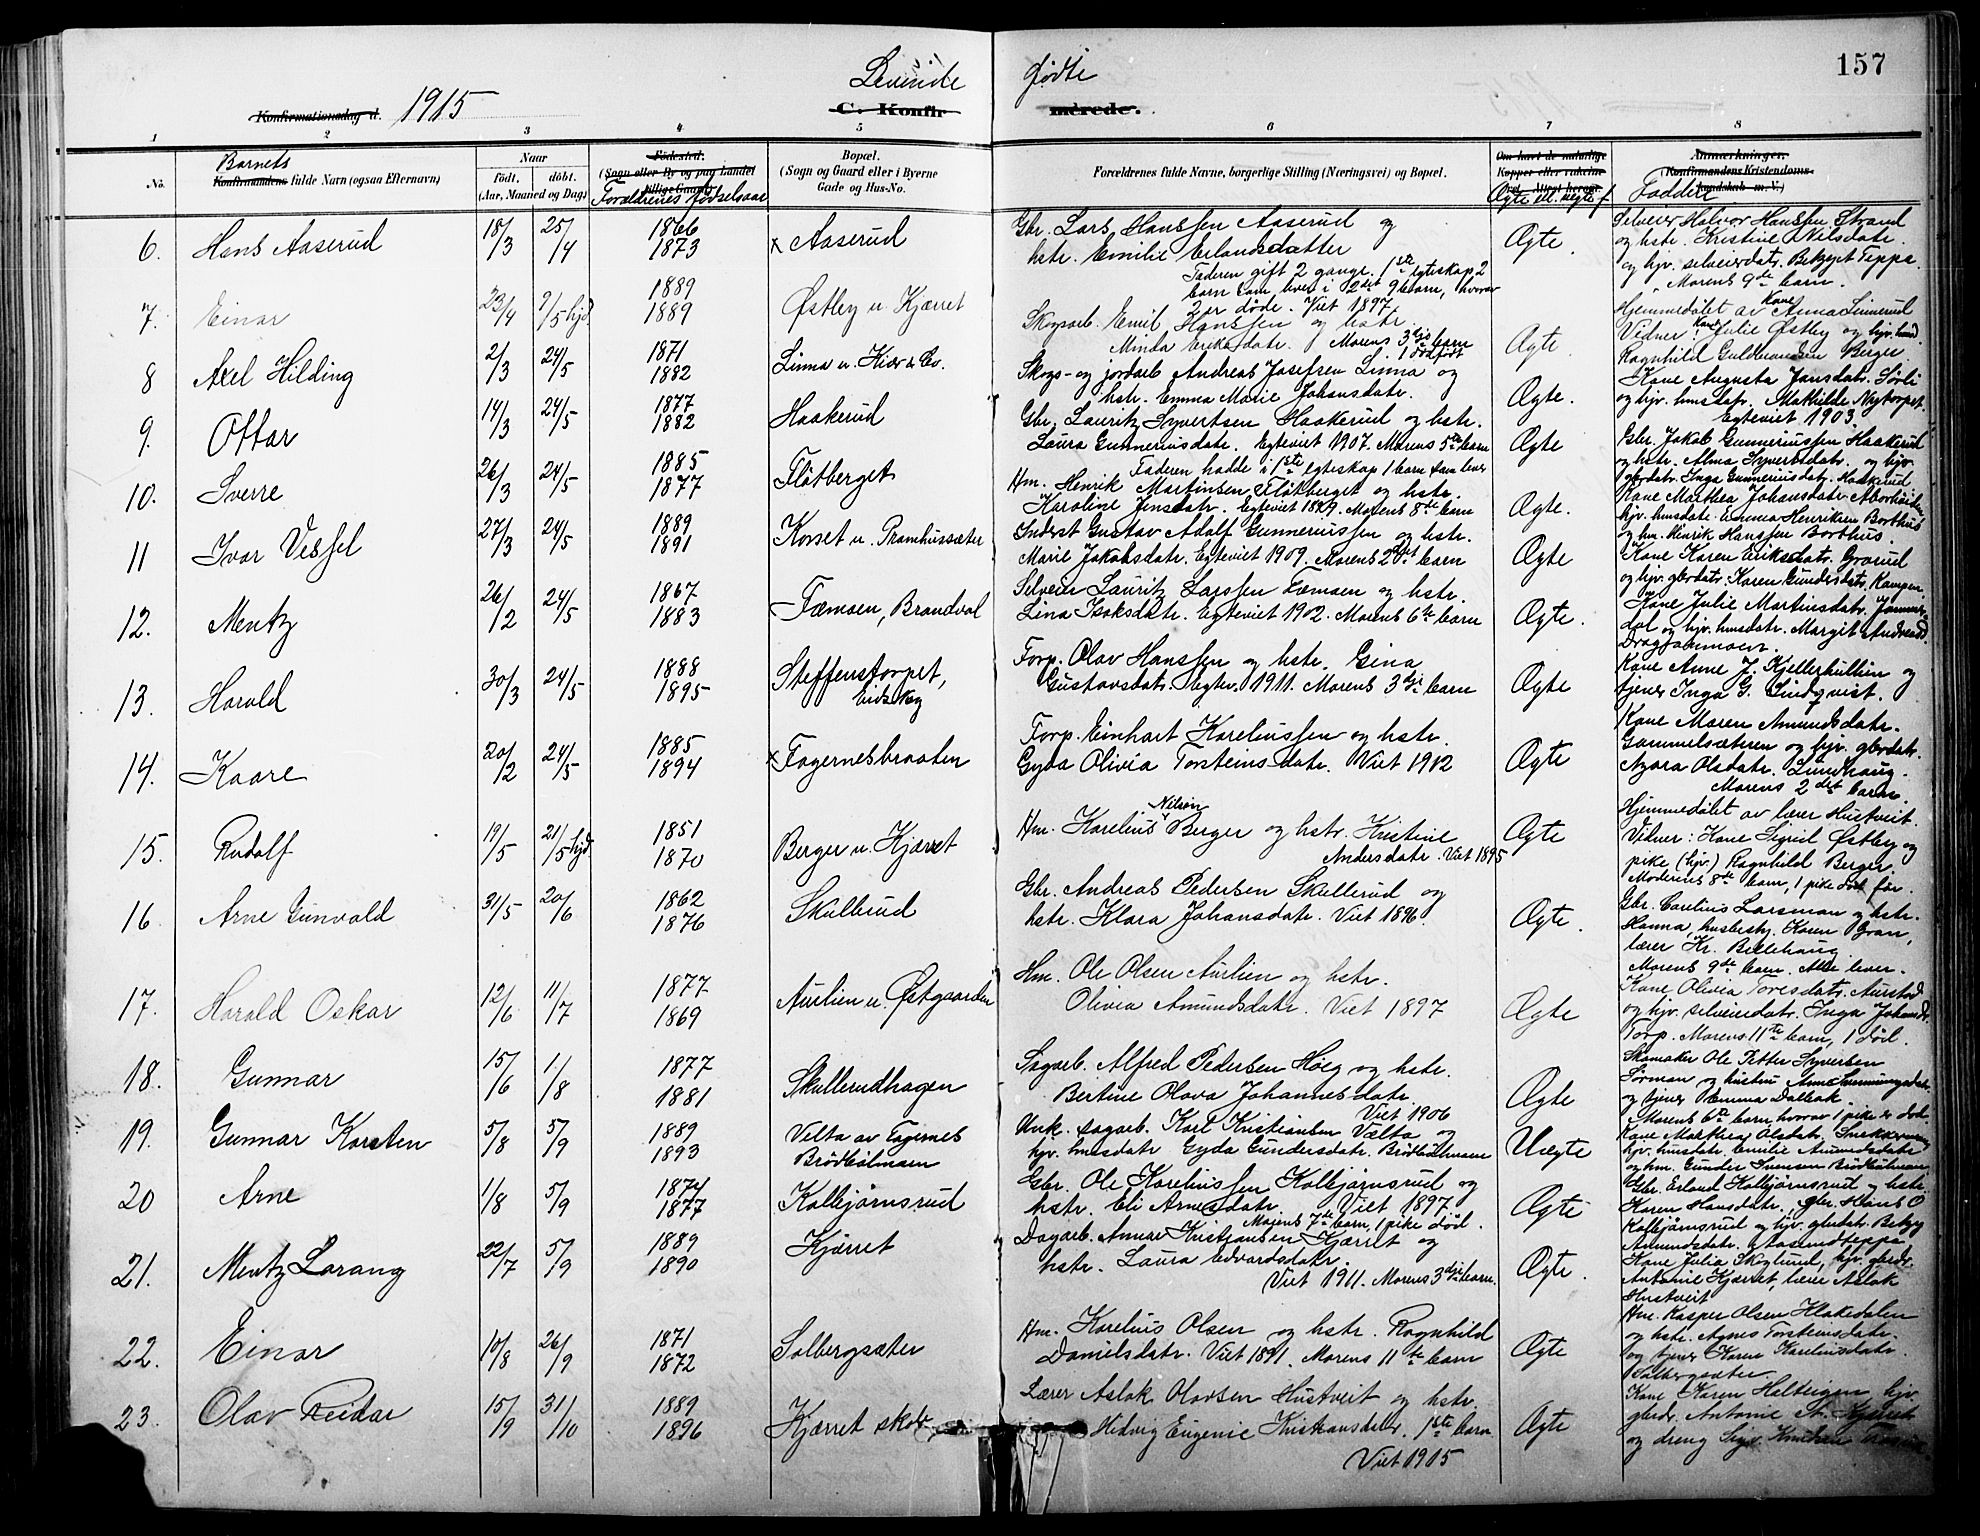 157
Levende fødte
Konfirmationsdag d. 1915
C. Konfirmerede.
1 2 3 4 5 6 7 8
No.
Barnets
Konfirmandens fulde Navn (ogsaa Efternavn)
Naar
födt. döbt.
(Aar, Maaned og Dag)
Födested.
(Sogn eller By og paa Landet tillige Gaard)
Forældrenes fødselsaar
Bopæl.
(Sogn og Gaard eller i Byerne
Gade og Hus-No.
Forældrenes fulde Navne, borgerlige Stilling (Næringsvei) og Bopæl.
Om havt de naturlige
Kopper eller vakcine
Ægte ell. uægte f.
Anmærkninger.
(Konfirmandens Kristendomskundskab m. V.)
Faddere
6. Hans Aaserud 18/3 25/4 1866 1873 x Aaserud
Gbr. Lars Hanssen Aaserud og
hstr. Emilie Erlandsdatter
Faderen gift 2 gange. 1ste egteskap 2
barn som lever i 2det 9 barn, hvorav
2 er døde. Viet 1897.
Ægte.
Selveier Halvor Hanssen Strand
og hstr. Kristine Nilsdatr.
og hjv. selveierdatr. Betzy Teppa.
Morens 9de barn.
7. Einar 23/4 9/5 hjd. 1889 1889 Østby u. Kjærret
Skogsarb. Emil Hanssen og hstr.
Minda Eriksdatr. Morens 3dje barn
1 dødfødt
Ægte.
Hjemmedøbt av Kone Anna Linnerud
Vidner Kone Julie Østby og hjv.
Ragnhild Guldbrandsen Berger
8 Axel Hilding 2/3 24/5 1871 1882 Linna u. Kiær & Co.
Skogs- og jordarb Andreas Josefsen Linna og
hstr. Emma Marie Johansdatr.
Ægte.
Kone Augusta Jansdatr. Sørli
og hjv. husdatr. Mathilde Nytorpet.
Egteviet 1903.
9. Ottar 14/3 24/5 1877 1882 Haakerud
Gbr. Lauritz Syvertsen Haakerud og hstr.
Laura Gunneriusdatr. Egteviet 1907. Morens 5te barn
Ægte
Gbr. Jakob Gunneriussen Haakerud
og hstr. Alma Syversdatr. og hjv.
gbrdatr. Inga Gunneriusdatr. Haakerud
10. Sverre 26/3 24/5 1885 1877 Fløtberget
Faderen hadde i 1ste egteskap 1 barn som lever
Hm. Henrik Martinsen Fløtberget og hstr.
Karoline Jensdatr. Morens 8de barn
Ægte.
Kone Marthea Johansdatr.
hjv. husdatr. Emma Henriksen Borthus
og hm. Henrik Hanssen Borthus.
11 Ivar Vessel 27/3 24/5 1889 1891 Korset u. Pramhussæter
Inderst Gustav Adolf Gunneriussen og hstr.
Marie Jakobsdatr. Egteviet 1909. Morens 2det barn
Ægte
Kone Karen Eriksdatr. Grorud
og hjv. gbrdatr. Karen Gundersdatr.
12. Mentz 26/2 24/5 1867 1883 Fæmoen, Brandval
Selveier Lauritz Larssen Fæmoen og hstr.
Lina Isaksdatr. Egteviet 1902. Morens 6te barn
Ægte.
Kone Julie Martinsdatr.
og hjv. husdatr. Margit
13. Harald 30/3 24/5 1888 1895 Steffenstorpet,
Eidskog
Forp. Olav Hanssen og hstr. Gina
Gustavsdatr. Egtev. 1911. Morens 3dje barn
Ægte
Kone Anne J. Kjellerhullien og
tjener Inga G. Lindqvist.
14. Kaare 20/2 24/5 1885 1894 x Fagernesbraaten
Forp. Einhart Kareliussen og hstr.
Gyda Olivia Torsteinsdatr. Viet 1912
Ægte
Kone Maren Amundsdatr.
Gammelsæteren og hjv. gbrdatr.
Azora Olsdatr. Lundhaug.
Morens 2det barn.
15. Rudolf 19/5 21/5 hjd 1851 1870 Berger u. Kjærret
Hm. Karelius Nilsen Berger og hstr. Kristine
Andersdatr. Viet 1895
Ægte
Hjemmedøbt av lærer Hustveit.
Vidner: Kone Sigrid Østby og
pike (hjv.) Ragnhild Berger.
Moderens 8de barn, 1 pike død før.
16. Arne Gunvald 31/5 20/6 1862 1876 Skullerud
Gbr. Andreas Pedersen Skullerud og
hstr. Klara Johansdatr. Viet 1896.
Ægte.
Gbr. Carelius Larsmon og hstr.
Hanna, husbesty. Karen Gran,
lærer Kr. Bellehaug
Morens 9de barn. Alle lever.
17. Harald Oskar 12/6 11/7 1877 1869 Aurlien u. Østgaarden
Hm. Ole Olsen Aurlien og hstr.
Olivia Amundsdatr. Viet 1897
Ægte
Kone Olivia Toresdatr. Aurstad
og hjv. selveierdatr. Inga Johansdr.
Torp. Morens 11te barn, 1 død.
18. Gunnar 15/6 1/8 1877 1881 Skullerudhagen
Sagarb. Alfred Pedersen Høeg og hstr.
Bertine Olava Johannesdatr.
Viet 1906
Ægte
Skomaker Ole Petter Syversen
Sørmon og hustru
og tjener Emma Dalbak.
Morens 6te barn, hvorav 1 pike er død.
19. Gunnar Karsten 5/8 5/9 1889 1893 Velta av Fagernes
Brödbölmoen
Unk. sagarb. Karl Kristiansen Vælta og
hjv. husdatr Gyda Gundersdatr. Brödbölmoen
Uægte
Kone Marthea Olsdatr.
hjv. husdatr. Emilie Amundsdatr
og hm. Gunder Svensen Brödbölmoen
20 Arne 1/8 5/9 1874 1877 Kolbjørnsrud
Gbr. Ole Kareliussen Kolbjørnsrud og
hstr. Eli Arnesdatr. Viet 1897.
Morens 7de barn, 1 pike død.
Ægte
Gbr. Erland Kolbjørnsrud og hstr.
Karen Hansdatr., gbr. Hans O
Kolbjørnsrud og hjv. gbrdatr. Betzy
Amundsdatr. Aaserudteppa.
21. Mentz Lorang 22/7 5/9 1889 1890 Kjærret
Dagarb. Annar Kristiansen Kjærret og
hstr. Laura Edvardsdatr.
Viet 1911. Morens 3dje barn.
Ægte.
Kone Julia Skoglund, hjv. gbrdr.
Antonie Kjærret, lærer Aslak
Hustveit
22. Einar 10/8 26/9 1871 1872 Solbergsæter
Hm. Karelius Olsen og hstr. Ragnhild
Danielsdatr. Viet 1891. Morens 11te barn
Ægte
Hm. Kasper Olsen Klokedalen
og hstr. Agnes Torsteinsdatr.
og tjener Karen Kareliusdatr.
Solbergsæter
23. Olav Reidar 15/9 31/10 1889 1896 Kjærret skole
Lærer Aslak Olavsen Hustveit og hstr.
Hedvig Eugenie Kristiansdatr. 1ste barn
Viet 1915
Ægte
Kone Karen Helteigen, hjv.
gbrdr. Antonie St. Kjærret
og dreng Sigv. Knutsen